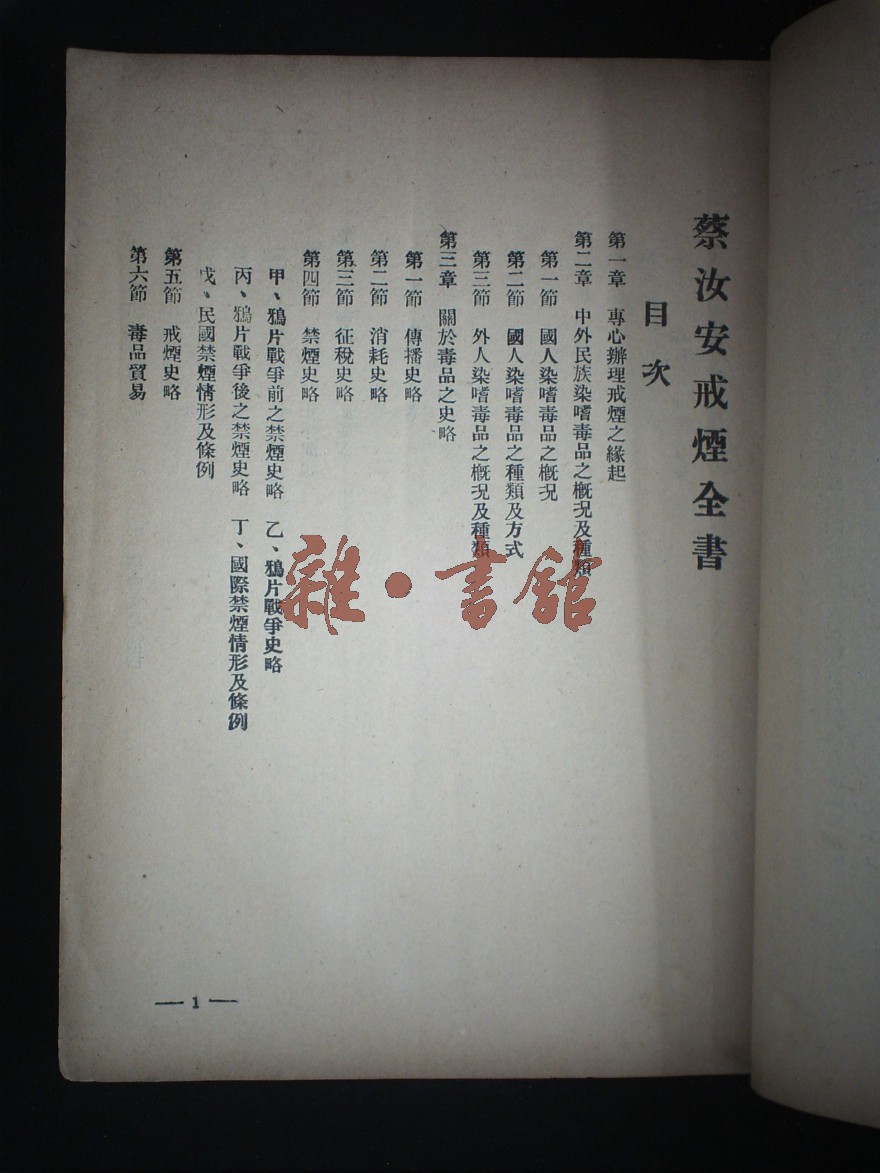 蔡汝安戒煙全書
目次
第一章 專心辦理戒煙之緣起
第二章 中外民族染嗜毒品之概況及種類
第一節 國人染嗜毒品之概況
第二節 國人染嗜毒品之種類及方式
第三節 外人染嗜毒品之概況及種類
第三章 關於毒品之史略
第一節 傳播史略
第二節 消耗史略
第三節 征稅史略
第四節 禁煙史略
甲、鴉片戰爭前之禁煙史略 乙、鴉片戰爭史略
丙、鴉片戰爭後之禁煙史略 丁、國際禁煙情形及條例
戊、民國禁煙情形及條例
第五節 戒煙史略
第六節 毒品貿易
— 1 —
雜·書館